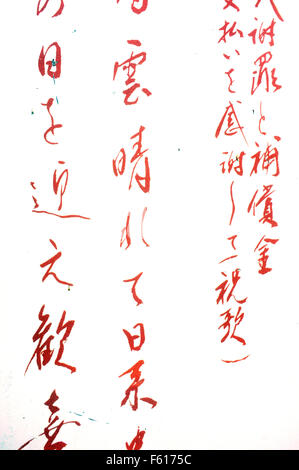 謝罪と補償金
支払いを感謝して祝歌)
雲晴れて日系
の日を迎え歓喜
alamy - F6175C